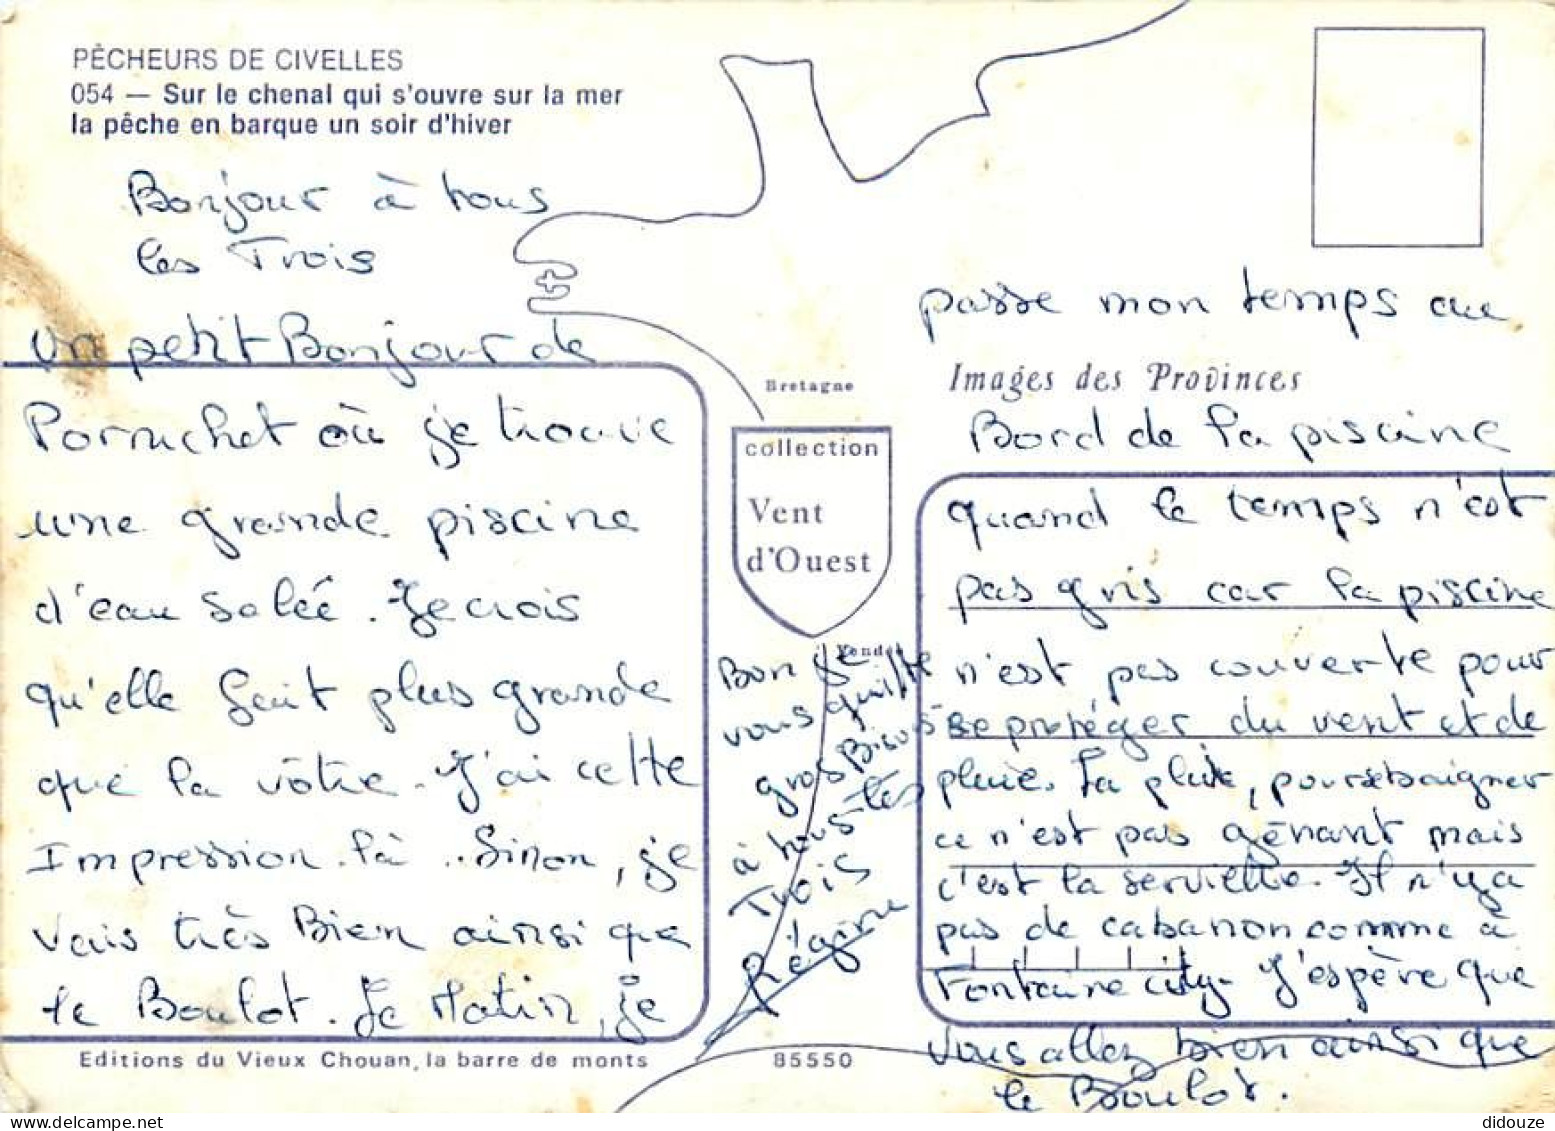 PÊCHEURS DE CIVELLES
054 — Sur le chenal qui s'ouvre sur la mer
la pêche en barque un soir d'hiver
Bonjour à tous
les Trois
un petit Bonjour de
Pornichet où je trouve
une grande piscine
d'eau salée. Je crois
qu'elle fait plus grande
que la vôtre. J'ai cette
Impression là.. Sinon, je
vais très Bien ainsi que
le Boulot. Le Matin, je
Editions du Vieux Chouan, la barre de monts
85550
Bretagne
collection
Vent
d'Ouest
Vendée
passe mon temps au
Images des Provinces
Bord de la piscine
quand le temps n'est
pas gris car la piscine
n'est pas couverte pour
se protéger du vent et de
pluie. La pluie, pour se baigner
ce n'est pas gênant mais
c'est la serviette. Il n'y a
pas de cabanon comme à
Fontaine city. J'espère que
vous allez bien ainsi que
le Boulot.
Bon je
vous quitte
gros Bisous
à tous les
Trois
Régine
didouze